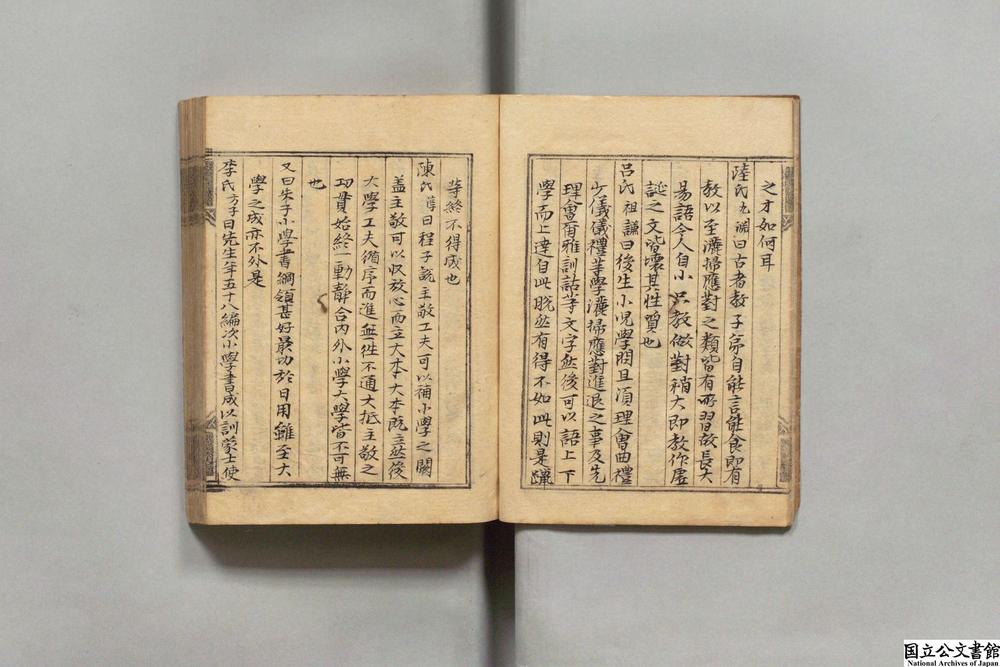 之才如何耳
陸氏九淵曰古者教子弟自能言能食即有
教以至灑掃應對之類皆有所習故長大
易語今人自小只教做對稍大即教作虛
誕之文皆壞其性質也
呂氏祖謙曰後生小兒學問且須理會曲禮
少儀儀禮等學灑掃應對進退之事及先
理會爾雅訓詁等文字然後可以語上下
學而上達自此脫然有得不如此則是躐
等終不得成也
陳氏淳曰程子說主敬工夫可以補小學之闕
盖主敬可以收放心而立大本大本既立然後
大學工夫循序而進無徃不通大抵主敬之
功貫始終一動靜合內外小學大學皆不可無
也
又曰朱子小學書綱領甚好最切於日用雖至大
學之成亦不外是
李氏方子曰先生年五十八編次小學書成以訓蒙士使
国立公文書館
National Archives of Japan